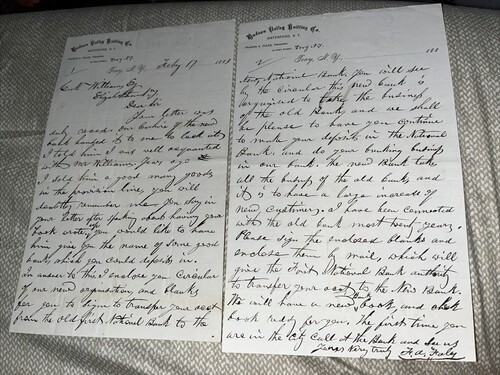 Hudson Valley Knitting Co.
WATERFORD, N.Y.
Troy, N.Y. Feby 17 188
Williams Esq
Dear Sir
Your letter was
duly recd. our Cashier of the new
bank handed it to me to look it
I told him I am well acquainted
with Mr Williams, years ago
I sold him a good many goods
in the provision line, you will
doubtless remember me. you say in
your letter after speaking about having your
bank you would like to have
him give you the name of some good
bank which you could deposit in.
in answer to this I enclose you Circular
of our new organization, and blanks
for you to sign to transfer your acct
from the old first National Bank to the
Hudson Valley Knitting Co.
WATERFORD, N.Y.
2 Troy, N.Y. 188
National Bank. you will see
by the Circular this new bank is
organized to take the business
of the old Bank, and we shall
be please to have you continue
to make your deposits in the National
Bank and do your banking business
in our bank. the new Bank takes
all the business of the old bank, and
it is to have a large increase of
new Customers. I have been connected
with the old bank most twenty years.
Please sign the enclosed blanks and
enclose them by mail, which will
give the First National Bank authority
to transfer your acct to the New Bank.
We will have a new book, and check
book ready for you. the first time you
are in the City Call at the Bank and see us
Yours Very truly